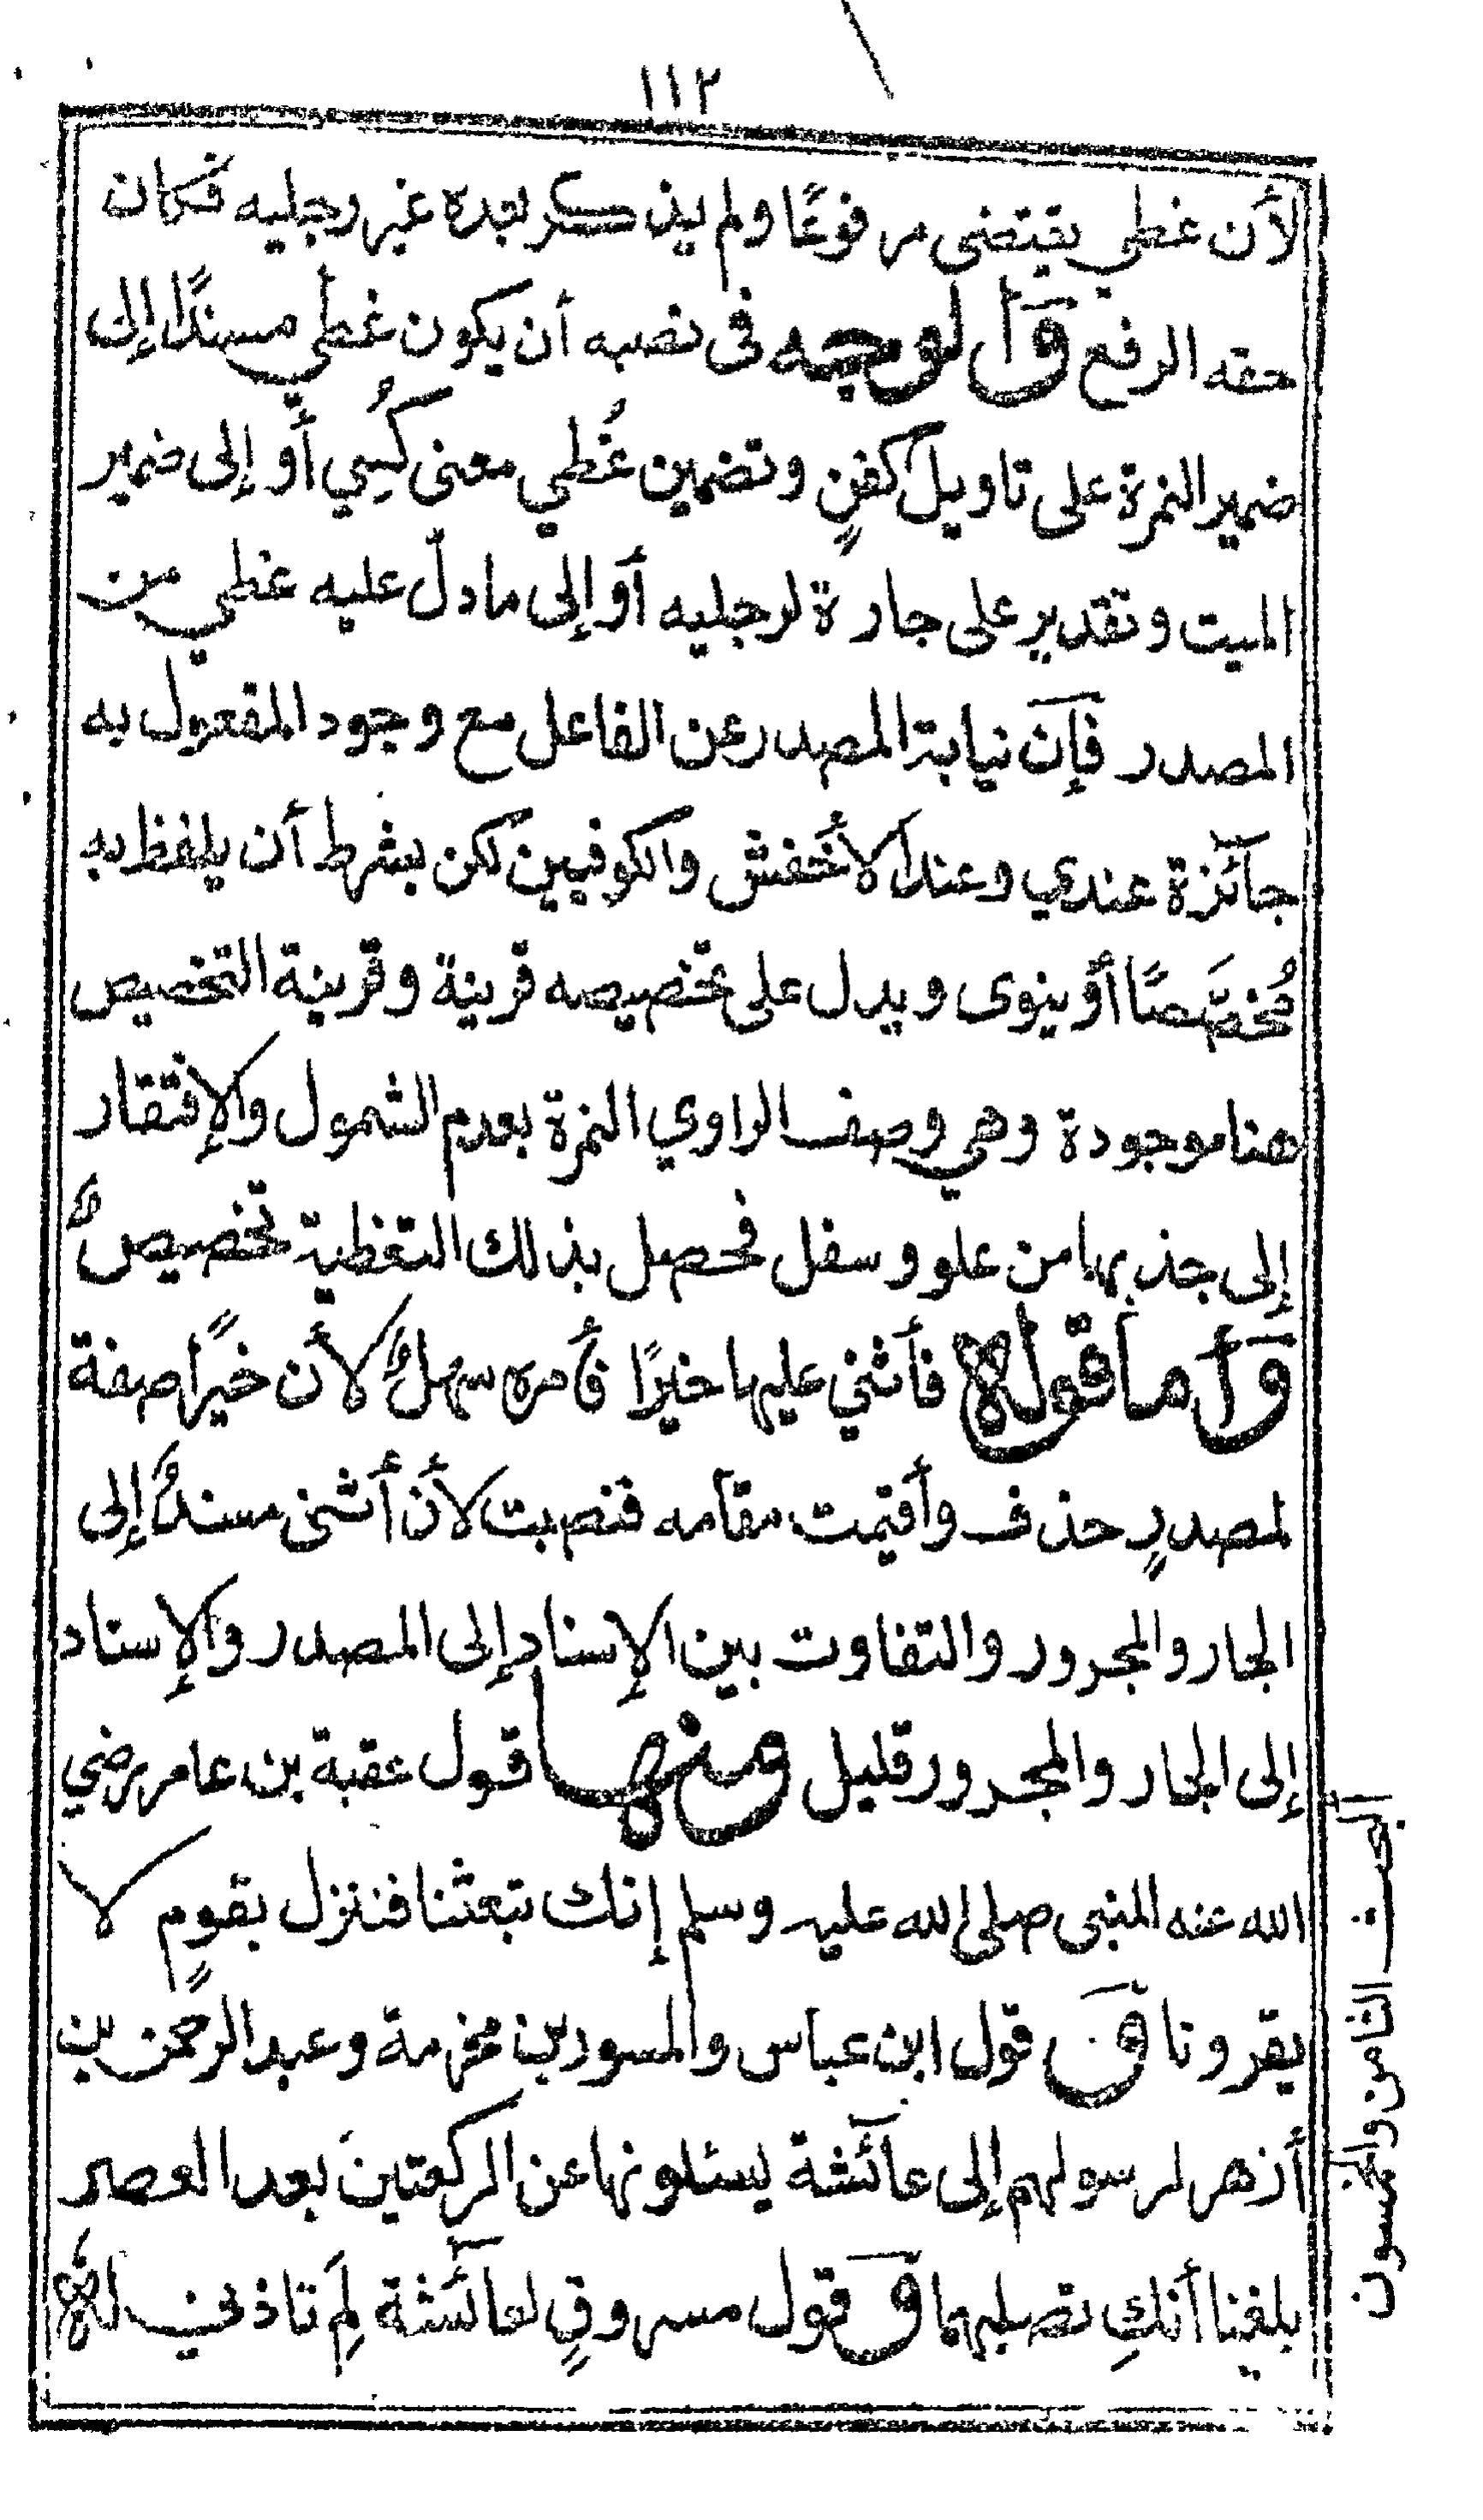 ١١٢
لأن غطي يقتضى مرفوعًا ولم يذكر بعده غير رجليه فكان
حقه الرفع وَالوجه فى نصبه أن يكون غطي مسندًا إلى
ضمير النمرة على تاويل كفنٍ وتضمين غُطي معنى كُسِي أو إلى ضمير
الميت وتقدير على جارة لرجليه أو إلى ما دلّ عليه غطي من
المصدر فإن نيابة المصدر عن الفاعل مع وجود المفعول به
جآئزة عندي وعند الأخفش والكوفيين لكن بشرط أن يلفظ به
مُخصَّصًا أو ينوى ويدل على تخصيصه قرينة وقرينة التخصيص
هنا موجودة وهي وصف الراوي النمرة بعدم الشمول والإفتقار
إلى جذبها من علو وسفل فحصل بذلك التغطية تخصيصٌ
وَأما قوله فأثني عليها خيرًا فأمره سهلٌ لأن خيرًا صفة
لمصدرٍ حذف وأقيمت مقامه فنصبت لأن أثنى مسندٌ إلى
الجار والمجرور والتفاوت بين الإسناد إلى المصدر والإسناد
إلى الجار والمجرور قليل ومنها قول عقبة بن عامر رضي
الله عنه للنبى صلى الله عليه وسلم إنك تبعثنا فننزل بقومٍ لا
يقرونا وَ قول ابن عباس والمسور بن مخرمة وعبد الرحمن بن
أزهر لرسولهم إلى عآئشة يسئلونها عن الركعتين بعد العصر
بلغنا أنكِ تصليهما وَ قول مسروقٍ لعآئشة لِمَ تاذني له
البحث الثامن والخمسون